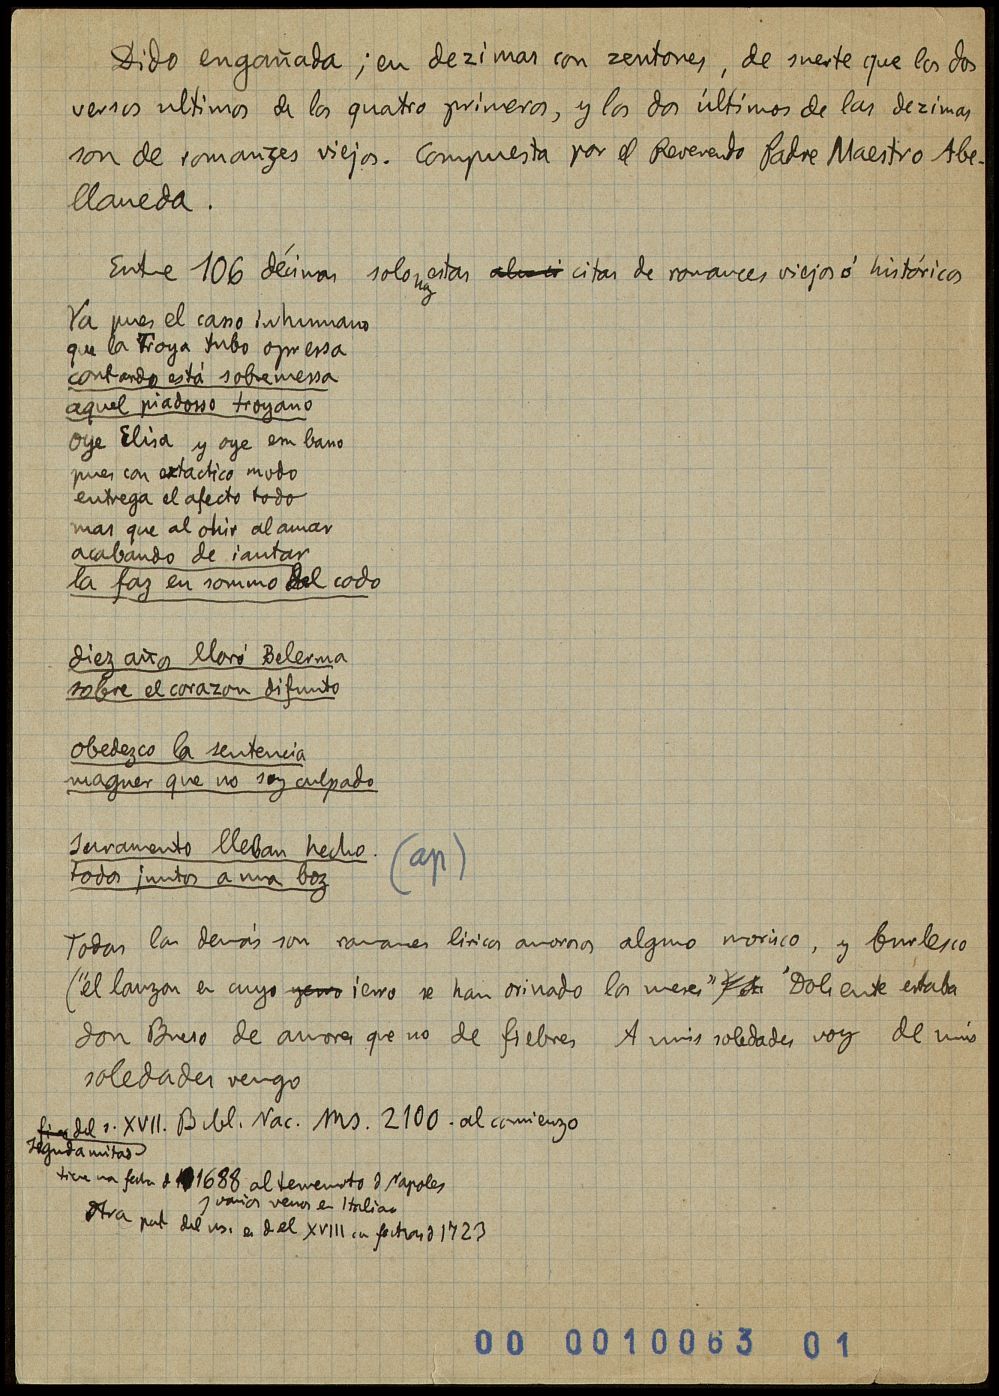 Dido engañada; en dezimas con zentones, de suerte que los dos
versos ultimos de los quatro primeros, y los dos últimos de las dezimas
son de romanzes viejos. Compuesta por el Reverendo Padre Maestro Abe-
llaneda.
Entre 106 décimas solo hay estas citas de romances viejos ó históricos
Ya pues el casso inhumano
que la Troya tubo opressa
contando está sobremessa
aquel piadosso troyano
oye Elisa y oye em bano
pues con extactico modo
entrega el afecto todo
mas que al ohir al amar
acabando de iantar
la faz en sommo del codo
diez años lloró Belerma
sobre el corazon difunto
obedezco la sentencia
maguer que no soy culpado
Juramento lleban hecho.
todos juntos a una boz
(ap)
Todas las demás son romances líricos amorosos alguno morisco, y burlesco
("el lanzon en cuyo ierro se han orinado los meses") "Doliente estaba
don Bueso de amores que no de fiebres A mis soledades voy de mis
soledades vengo
fines del s. XVII. Bibl. Nac. Ms. 2100. al comienzo
segunda mitad
tiene una fecha d 1688 al terremoto d Napoles
y varios versos en Italiano
Otra part del ms. es del XVIII con fechas d 1723
00 0010063 01